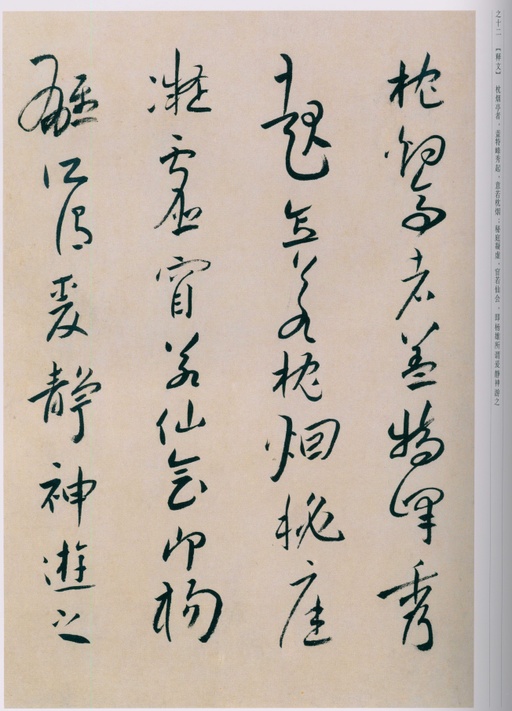 之十二 【释文】 枕烟亭者,盖特峰秀起,意若枕烟;秘庭凝虚,窅若仙会,即杨雄所谓爰静神游之
枕煙亭者蓋特峰秀
起意若枕烟秘庭
凝虛窅若仙會即楊
雄所謂爰靜神遊之